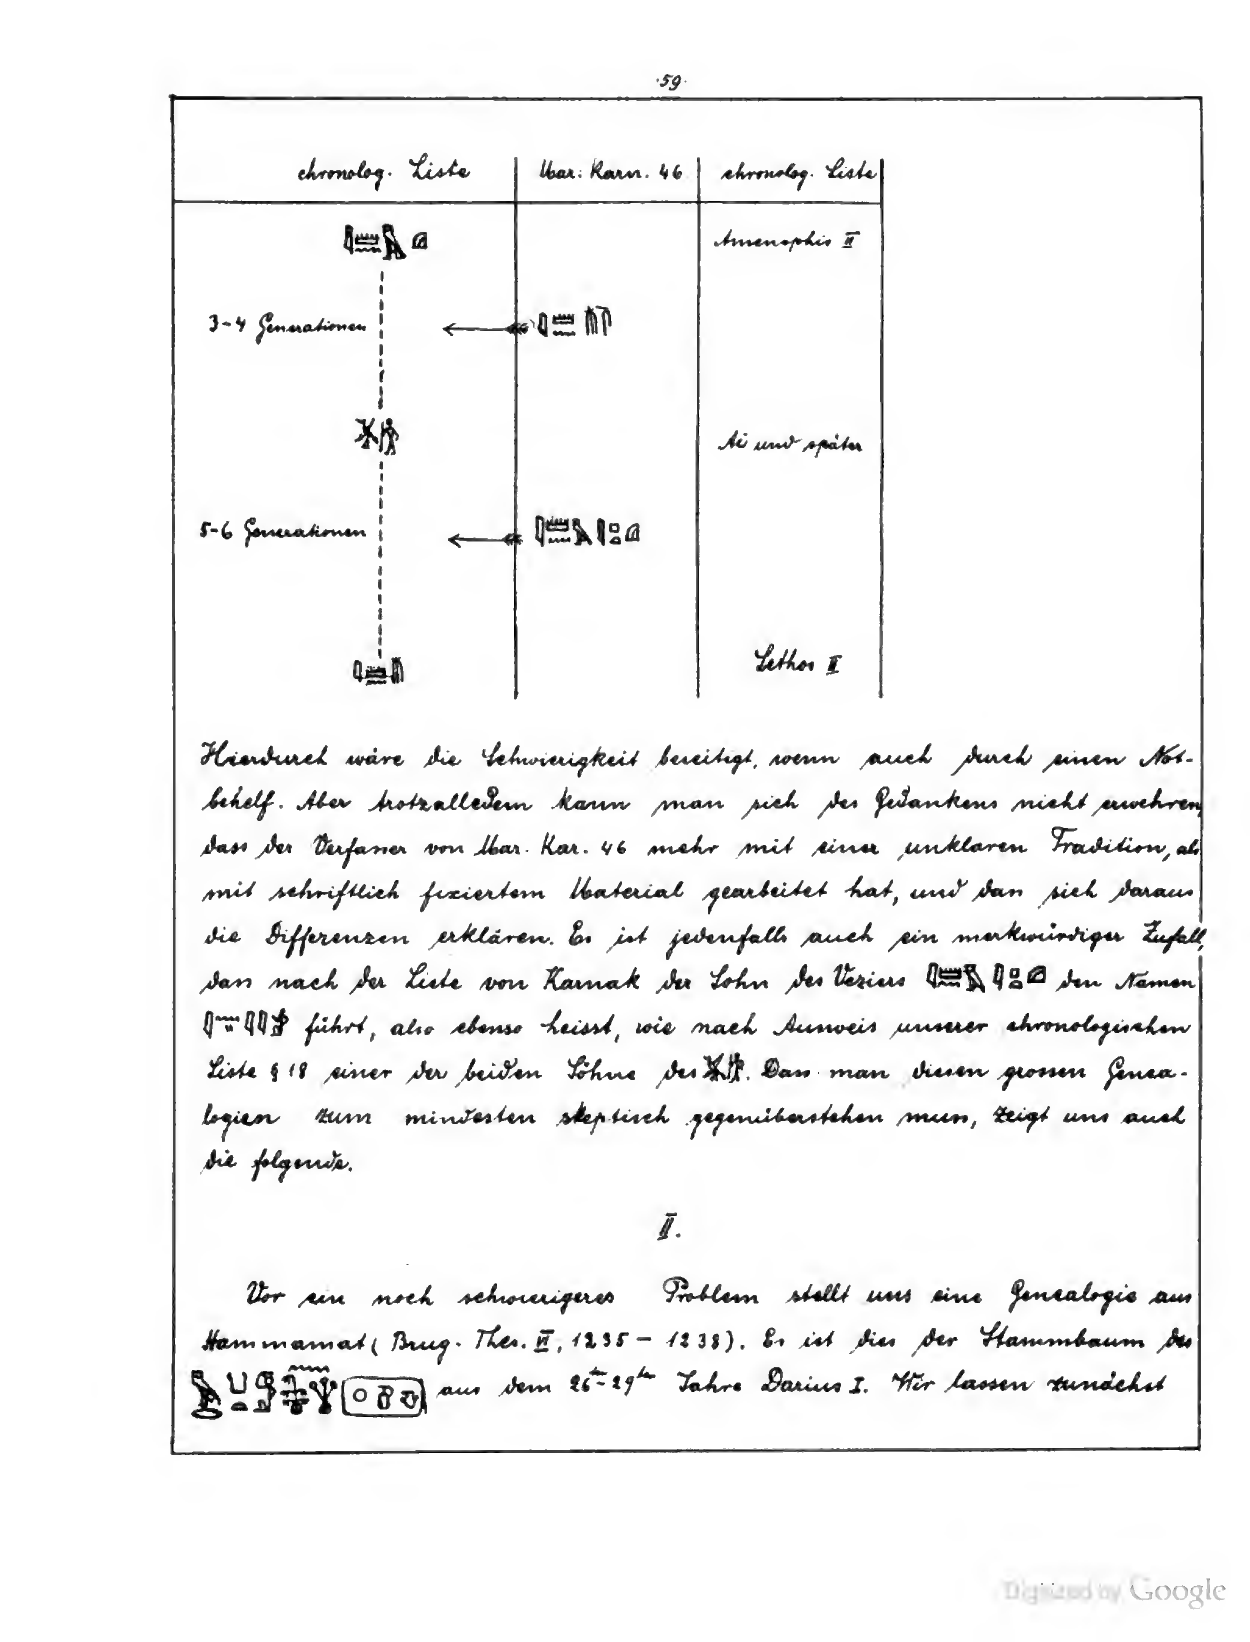 ·59·
chronolog. Liste Mar. Karn. 46 chronolog. Liste
Amenophis II
3-4 Generationen
Ai und später
5-6 Generationen
Sethos II
Hierdurch wäre die Schwierigkeit beseitigt, wenn auch durch einen Not-
behelf. Aber trotzalledem kann man sich des Gedankens nicht erwehren,
dass der Verfasser von Mar. Kar. 46 mehr mit einer unklaren Tradition, als
mit schriftlich fixiertem Material gearbeitet hat, und dass sich daraus
die Differenzen erklären. Es ist jedenfalls auch ein merkwürdiger Zufall,
dass nach der Liste von Karnak der Sohn des Veziers den Namen
führt, also ebenso heisst, wie nach Ausweis unserer chronologischen
Liste § 18 einer der beiden Söhne des . Dass man diesen grossen Genea-
logien zum mindesten skeptisch gegenüberstehen muss, zeigt uns auch
die folgende.
II.
Vor ein noch schwierigeres Problem stellt uns eine Genealogie aus
Hammamat (Brug. Thes. VI, 1235 – 1238). Es ist dies der Stammbaum des
aus dem 26ten-29ten Jahre Darius I. Wir lassen zunächst
Digitized by Google